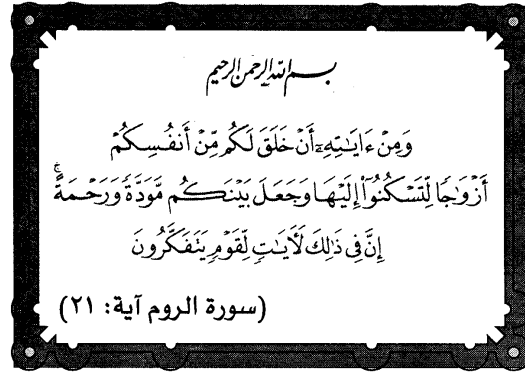 بسم الله الرحمن الرحيم
وَمِنْ ءَايَـٰتِهِۦٓ أَنْ خَلَقَ لَكُم مِّنْ أَنفُسِكُمْ
أَزْوَٰجًا لِّتَسْكُنُوٓا۟ إِلَيْهَا وَجَعَلَ بَيْنَكُم مَّوَدَّةً وَرَحْمَةً ۚ
إِنَّ فِى ذَٰلِكَ لَأَيَـٰتٍ لِّقَوْمٍ يَتَفَكَّرُونَ
(سورة الروم آية: ٢١)